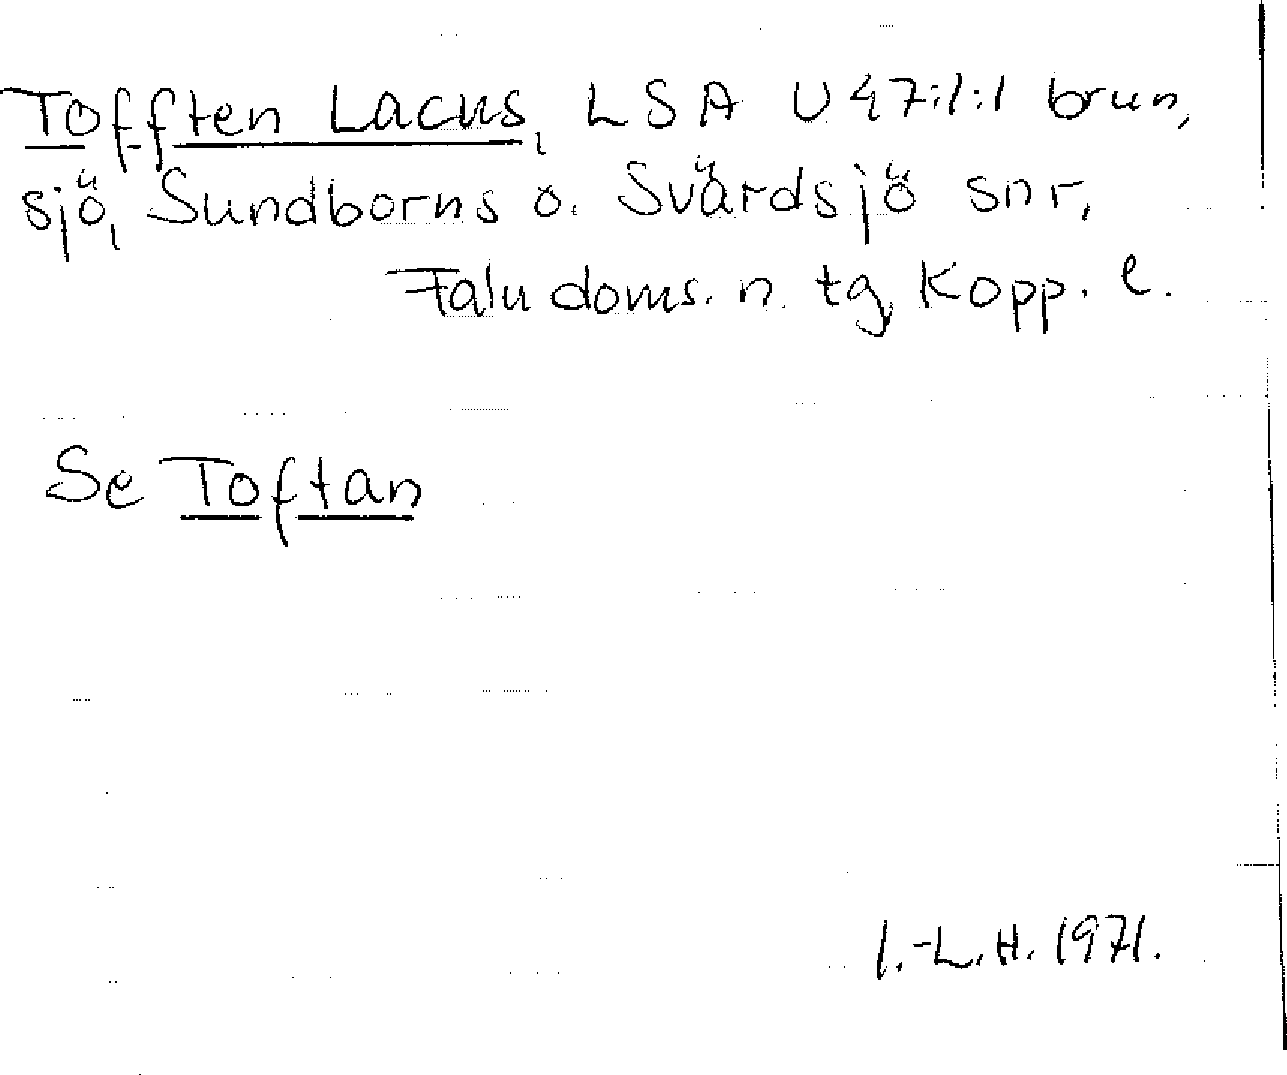 Tofften Lacus, LSA U47:1:1 brun,
sjö, Sundborns o. Svärdsjö snr,
Falu doms. n. tg, Kopp. l.
Se Toftan
I.-L.H. 1971.